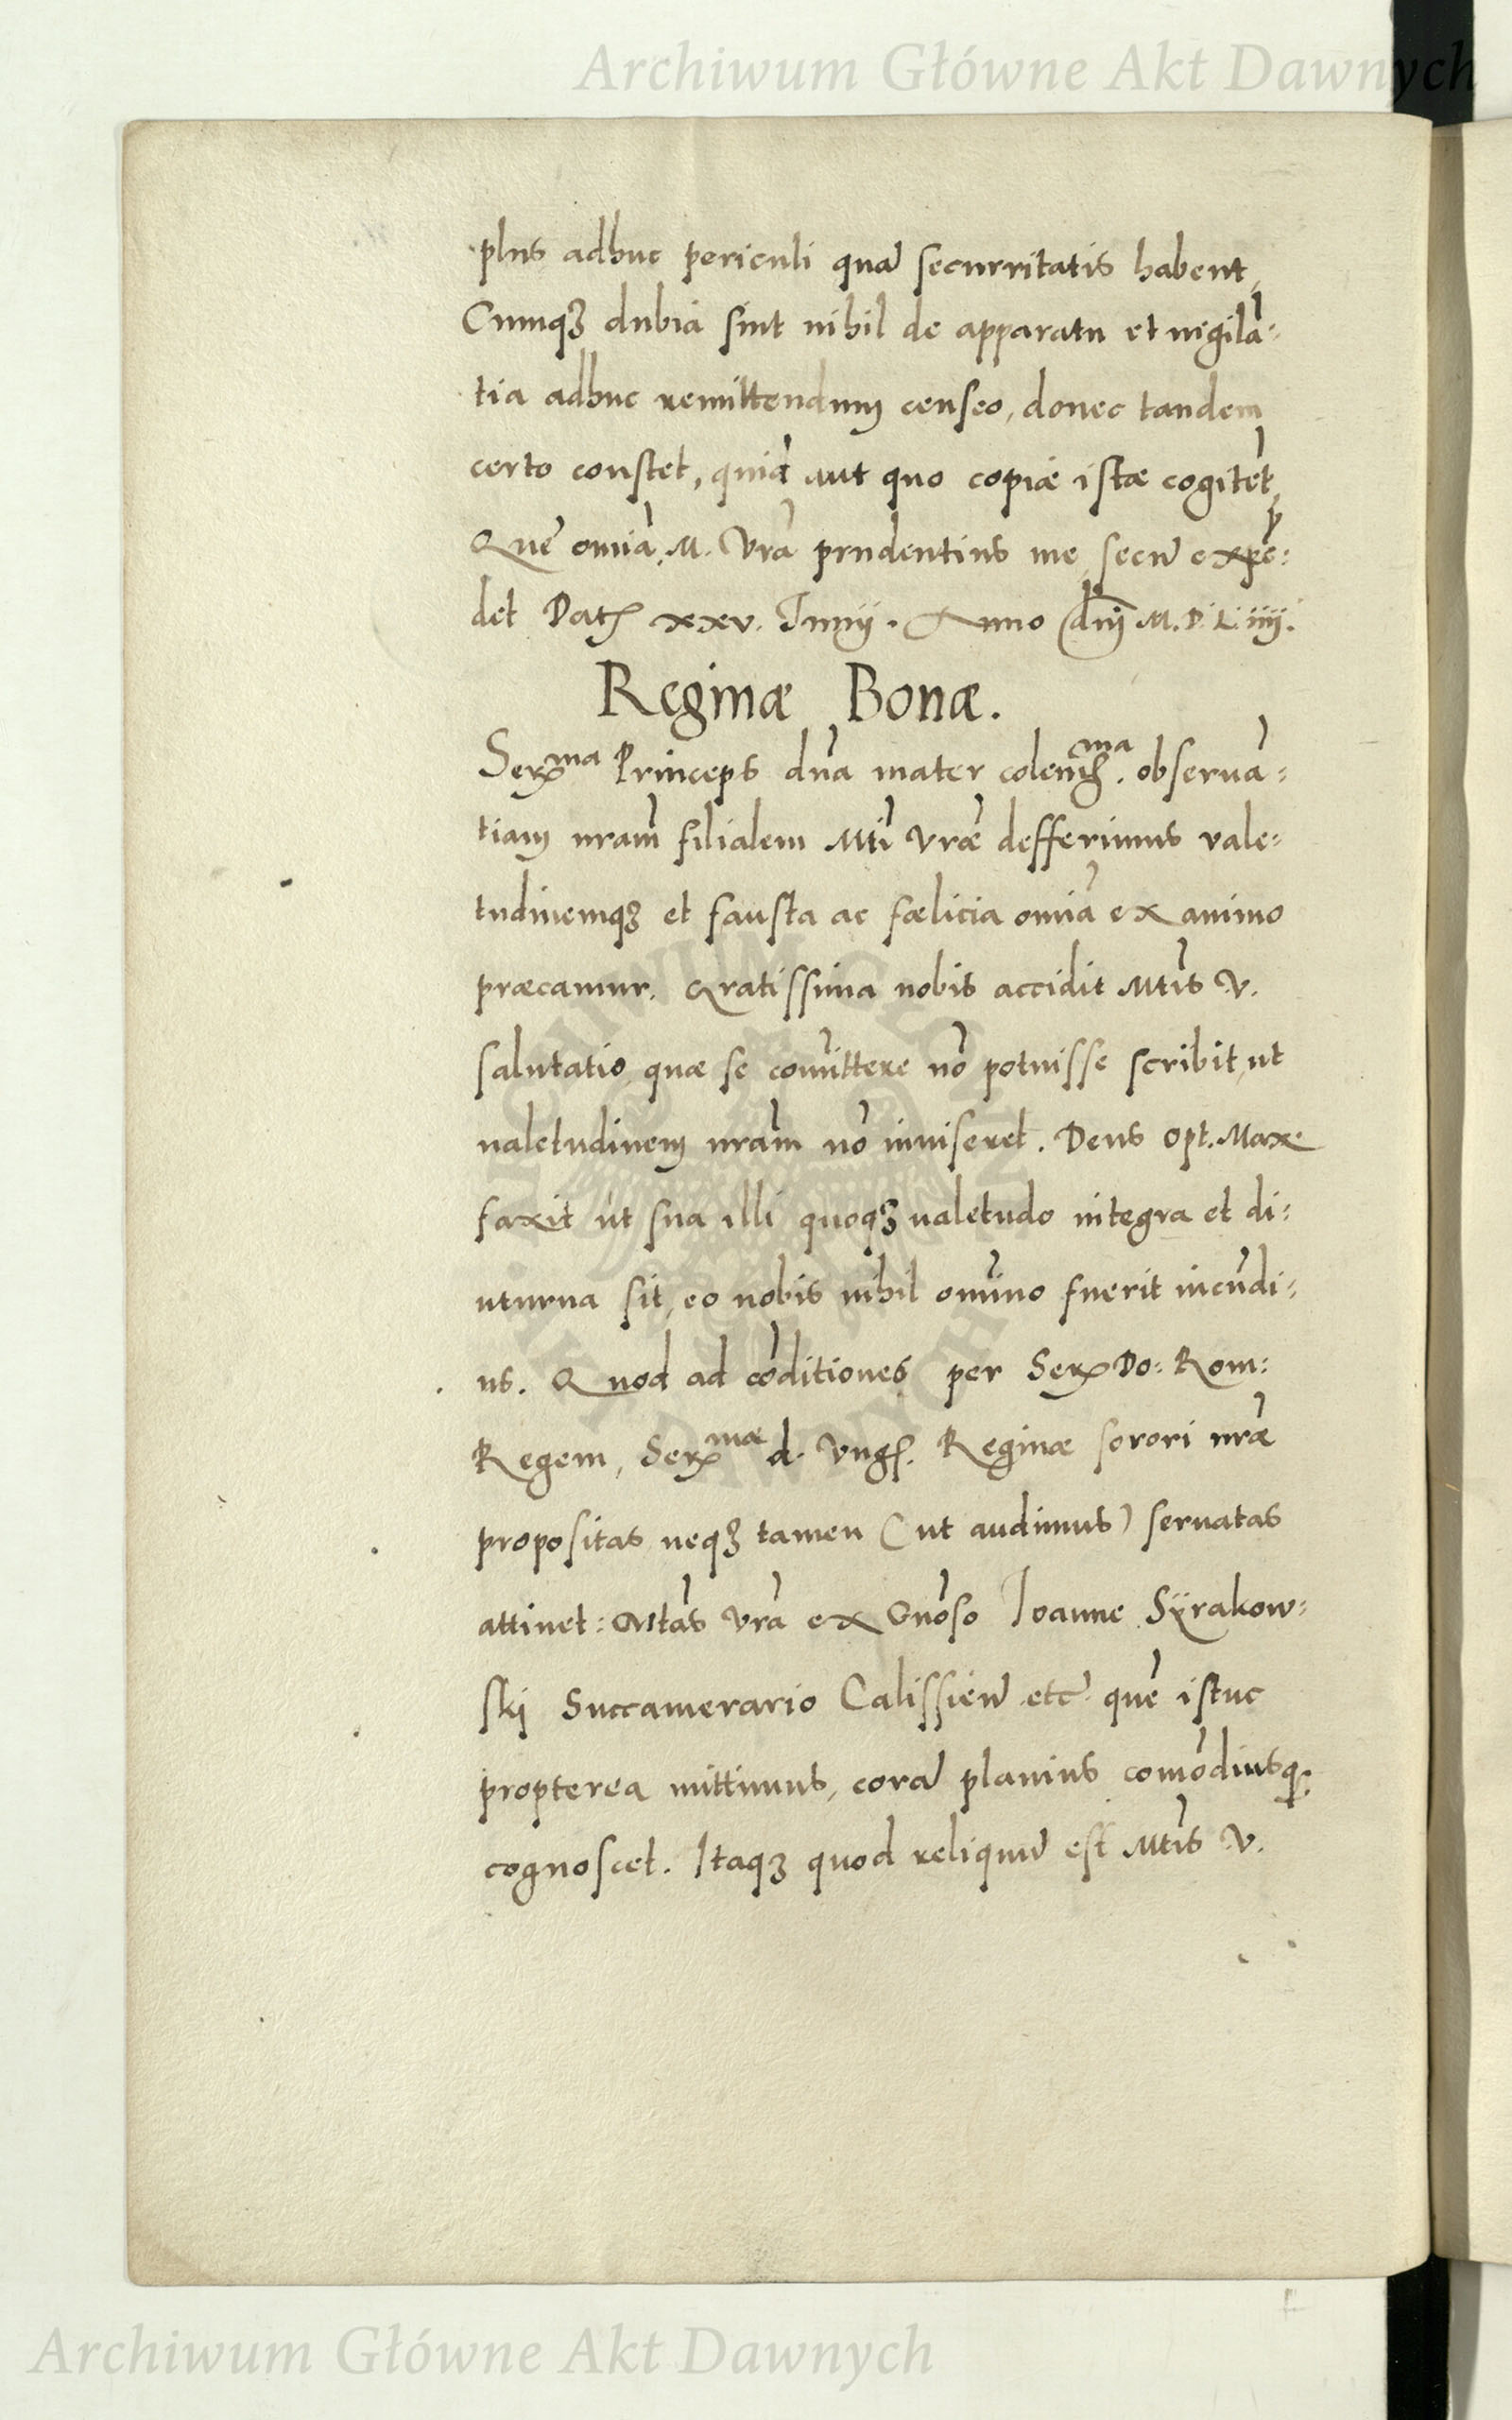 Archiwum Główne Akt Dawnych
plus adhuc periculi quā securritatis habent,
Cumqꝫ dubia sint nihil de apparatu et uigilā-
tia adhuc remittendum censeo, donec tandem
certo constet, quid aut quo copiæ istæ cogitēt,
Quę om̄ia M. Vr̄a prudentius me secū expē-
det Datꝭ xxv. Junij. Anno dn̄j M.D.L.iiij.
Reginæ Bonæ.
Serᵐᵃ Princeps dn̄a mater colen̄ᵐᵃ. obseruā-
tiam nr̄am filialem Mti Vræ defferimus vale-
tudinemqꝫ et fausta ac fælicia om̄ia ex animo
præcamur. Gratissima nobis accidit Mtis V.
salutatio, quæ se com̄ittere nō potuisse scribit, ut
ualetudinem nr̄am nō inuiseret. Deus Opt. Max.
faxit ut sua illi quoqꝫ ualetudo integra et di-
uturna sit, eo nobis nihil om̄ino fuerit iucūdi-
us. Quod ad cōditiones per Ser. Do: Rom:
Regem, Serᵐᵃᵉ d. Vngꝭ. Reginæ sorori nr̄æ
propositas neqꝫ tamen (ut audimus) seruatas
attinet: Mtās Vr̄a ex Gnōso Joanne Sÿrakow-
ski Succamerario Calissień etc quē istuc
propterea mittimus, corā planius comōdiusqꝫ
cognoscet. Itaqꝫ quod reliquū est Mtis V.
ARCHIWUM GŁÓWNE
AKT DAWNYCH
Archiwum Główne Akt Dawnych